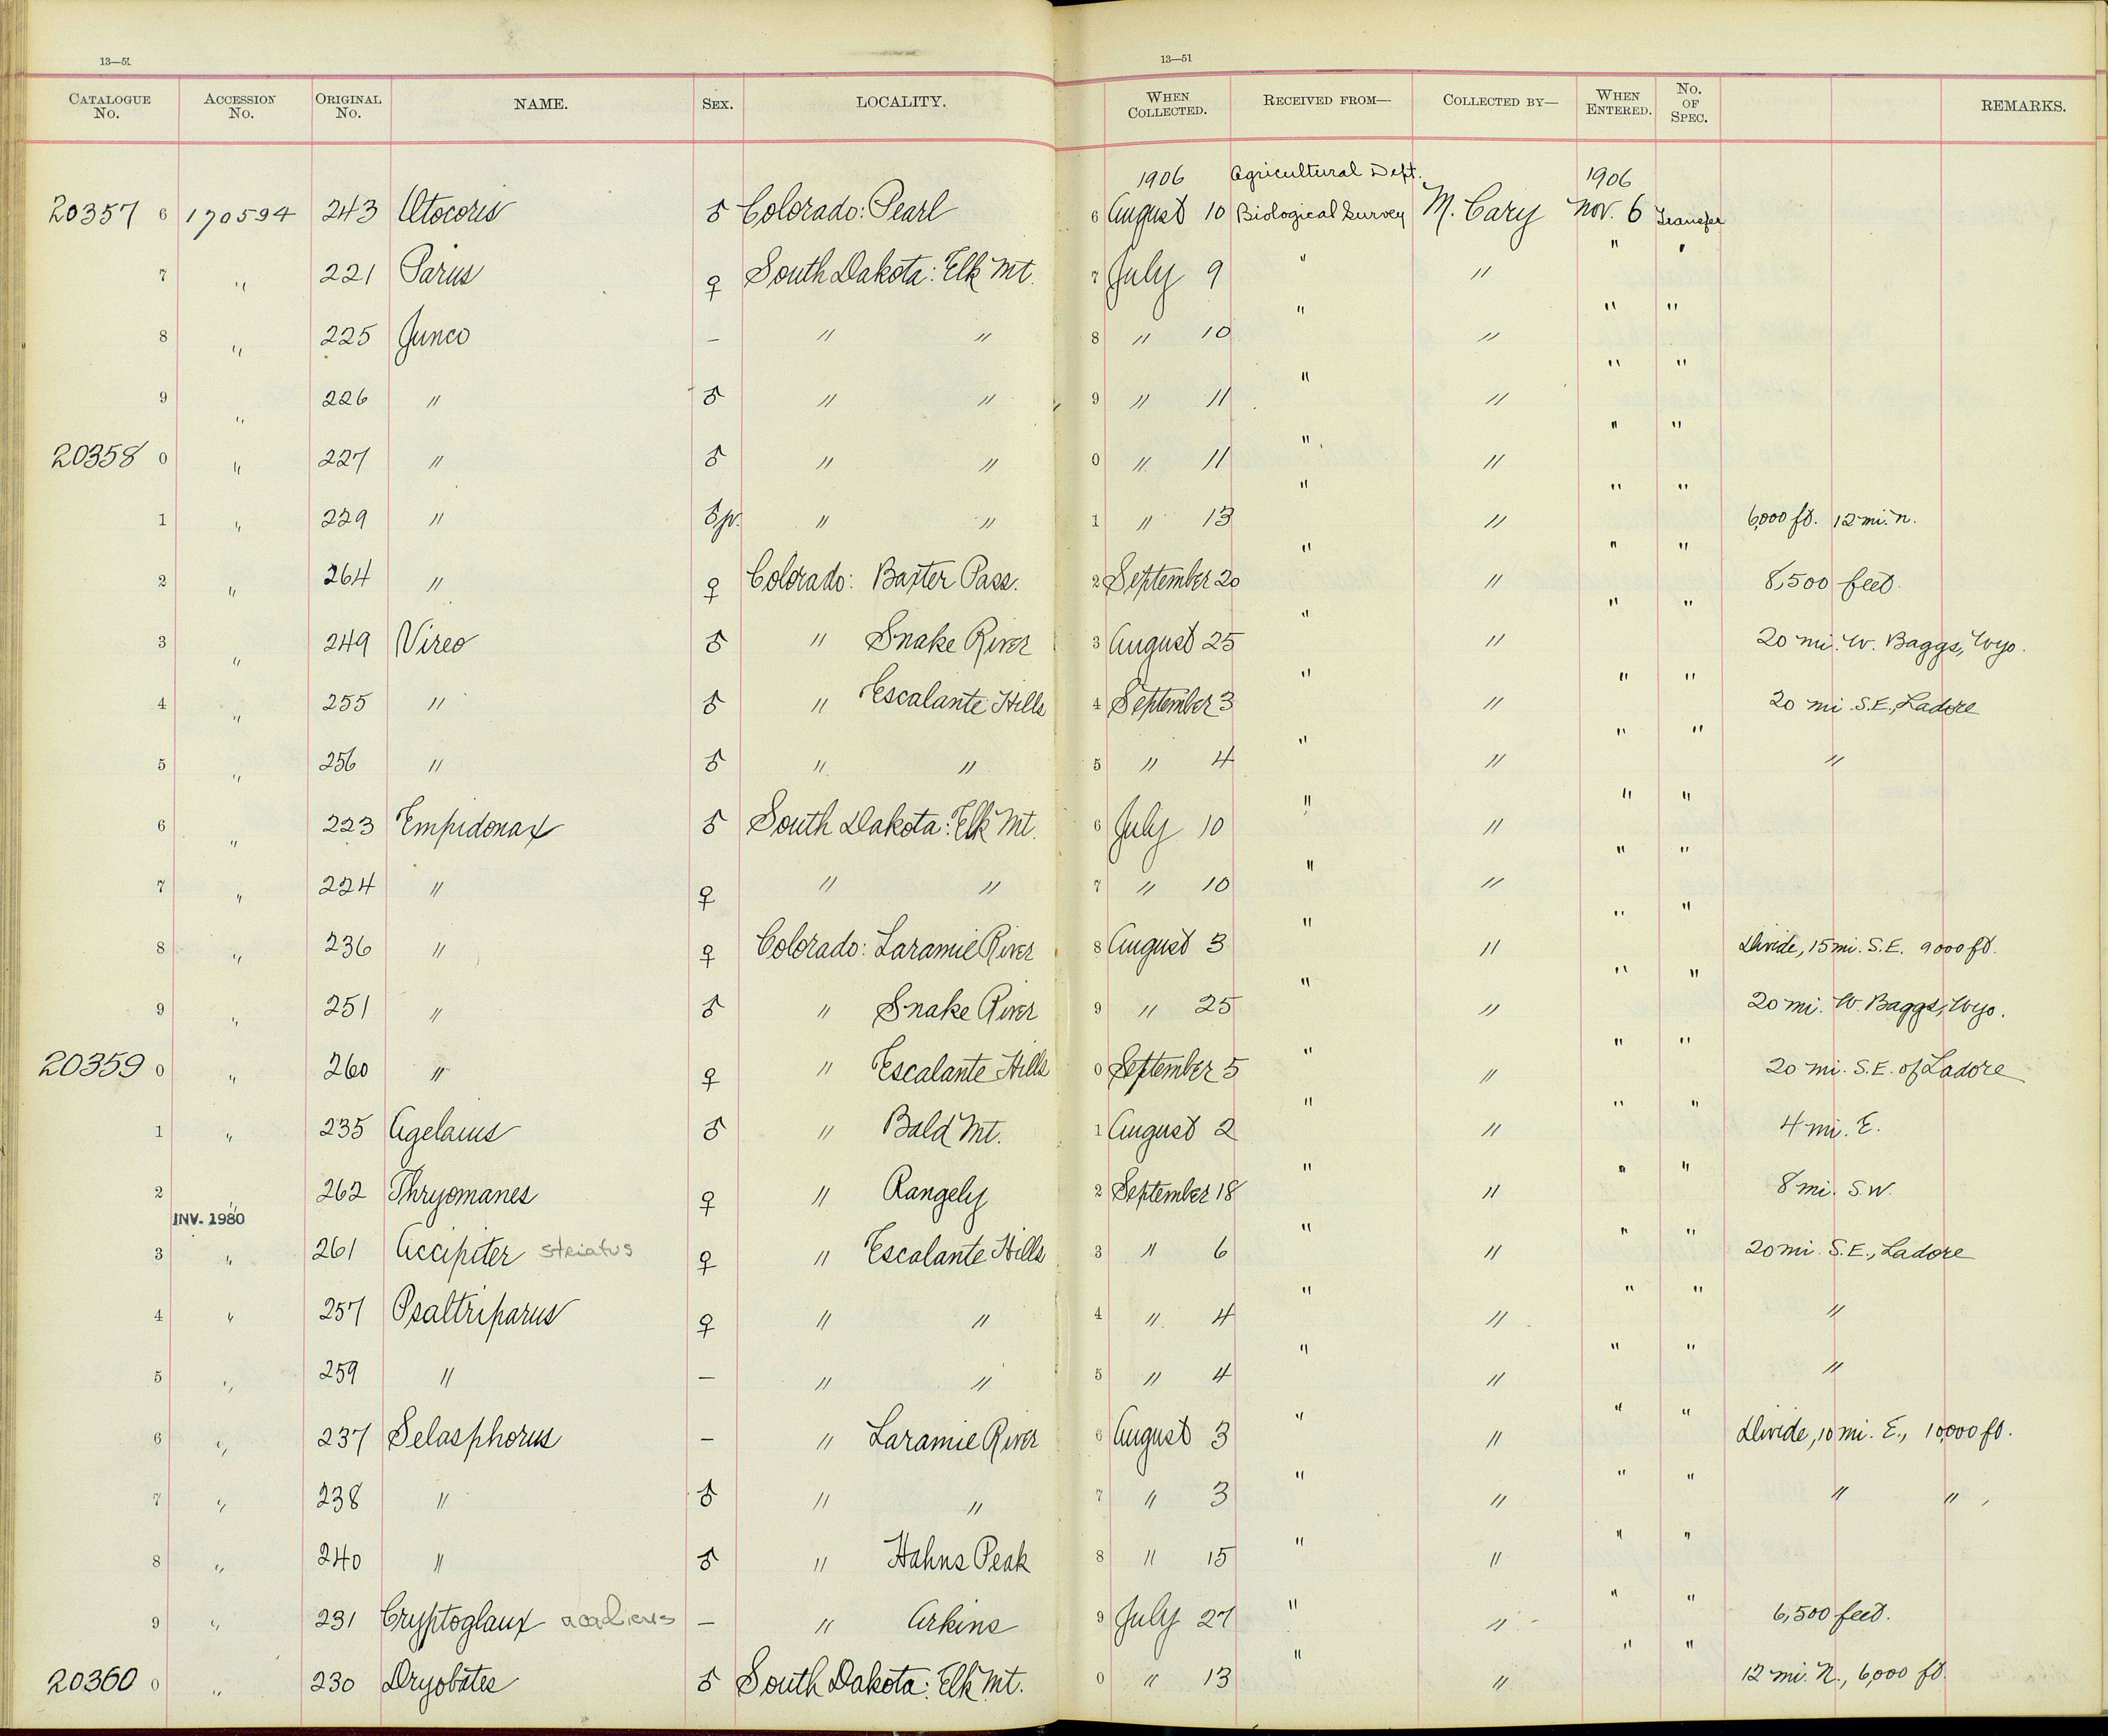 13—51 13—51
CATALOGUE No. ACCESSION No. ORIGINAL No. NAME. SEX. LOCALITY. WHEN COLLECTED. RECEIVED FROM— COLLECTED BY— WHEN ENTERED. No. OF SPEC. REMARKS.
1906 Agricultural Dept. 1906
20357 6 170594 243 Otocoris ♂ Colorado: Pearl 6 August 10 Biological Survey M. Cary Nov. 6 Transfer
7 " 221 Parus ♀ South Dakota: Elk Mt. 7 July 9 " " " "
8 " 225 Junco — " " 8 " 10 " " " "
9 " 226 " ♂ " " 9 " 11 " " " "
20358 0 " 227 " ♂ " " 0 " 11 " " " "
1 " 229 " ♂ jv. " " 1 " 13 " " " " 6,000 ft. 12 mi. N.
2 " 264 " ♀ Colorado: Baxter Pass. 2 September 20 " " " " 8,500 feet.
3 " 249 Vireo ♂ " Snake River 3 August 25 " " " " 20 mi. W. Baggs, Wyo.
4 " 255 " ♂ " Escalante Hills 4 September 3 " " " " 20 mi. S.E., Ladore
5 " 256 " ♂ " " 5 " 4 " " " " "
6 " 223 Empidonax ♂ South Dakota: Elk Mt. 6 July 10 " " " "
7 " 224 " ♀ " " 7 " 10 " " " "
8 " 236 " ♀ Colorado: Laramie River 8 August 3 " " " " Divide, 15 mi. S.E. 9000 ft.
9 " 251 " ♂ " Snake River 9 " 25 " " " " 20 mi. W. Baggs, Wyo.
20359 0 " 260 " ♀ " Escalante Hills 0 September 5 " " " " 20 mi. S.E. of Ladore
1 " 235 Agelaius ♂ " Bald Mt. 1 August 2 " " " " 4 mi. E.
2 " 262 Thryomanes ♀ " Rangely 2 September 18 " " " " 8 mi. S.W.
INV. 1980
3 " 261 Accipiter striatus ♀ " Escalante Hills 3 " 6 " " " " 20 mi. S.E., Ladore
4 " 257 Psaltriparus ♀ " " 4 " 4 " " " " "
5 " 259 " — " " 5 " 4 " " " " "
6 " 237 Selasphorus — " Laramie River 6 August 3 " " " " Divide, 10 mi. E., 10,000 ft.
7 " 238 " ♂ " " 7 " 3 " " " " " "
8 " 240 " ♂ " Hahns Peak 8 " 15 " " " "
9 " 231 Cryptoglaux acadicus — " Arkins 9 July 27 " " " " 6,500 feet.
20360 0 " 230 Dryobates ♂ South Dakota: Elk Mt. 0 " 13 " " " " 12 mi. N., 6,000 ft.